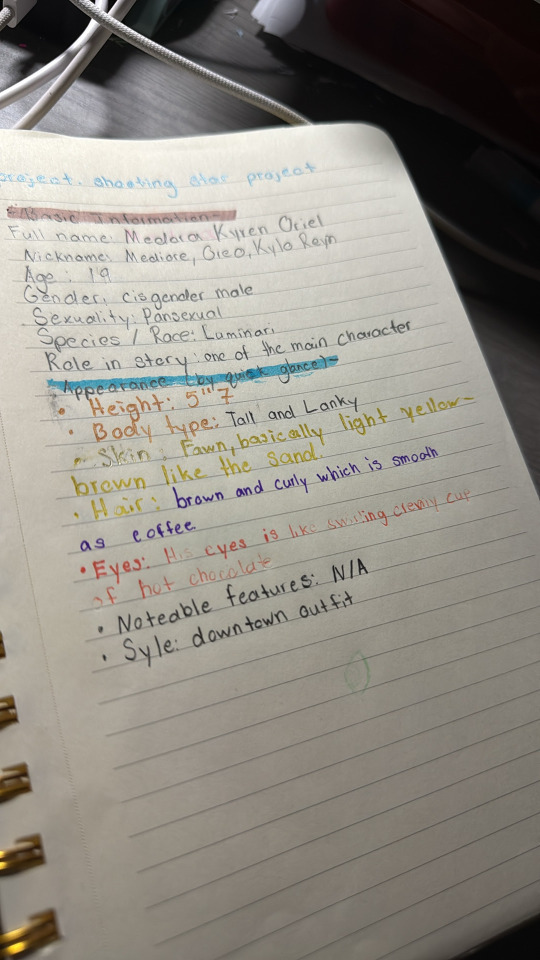 project. shooting star project
Basic Information-
Full name: Medora Kyren Oriel
Nickname: Mediore, Oreo, Kylo Reyn
Age: 19
Gender: cisgender male
Sexuality: Pansexual
Species / Race: Luminari
Role in story: one of the main character
Appearance (by quick glance)-
• Height: 5"7
• Body type: Tall and Lanky
• Skin: Fawn, basically light yellow-
brown like the sand.
• Hair: brown and curly which is smooth
as coffee
• Eyes: His eyes is like swirling cup
of hot chocolate
• Noteable features: N/A
• Syle: downtown outfit